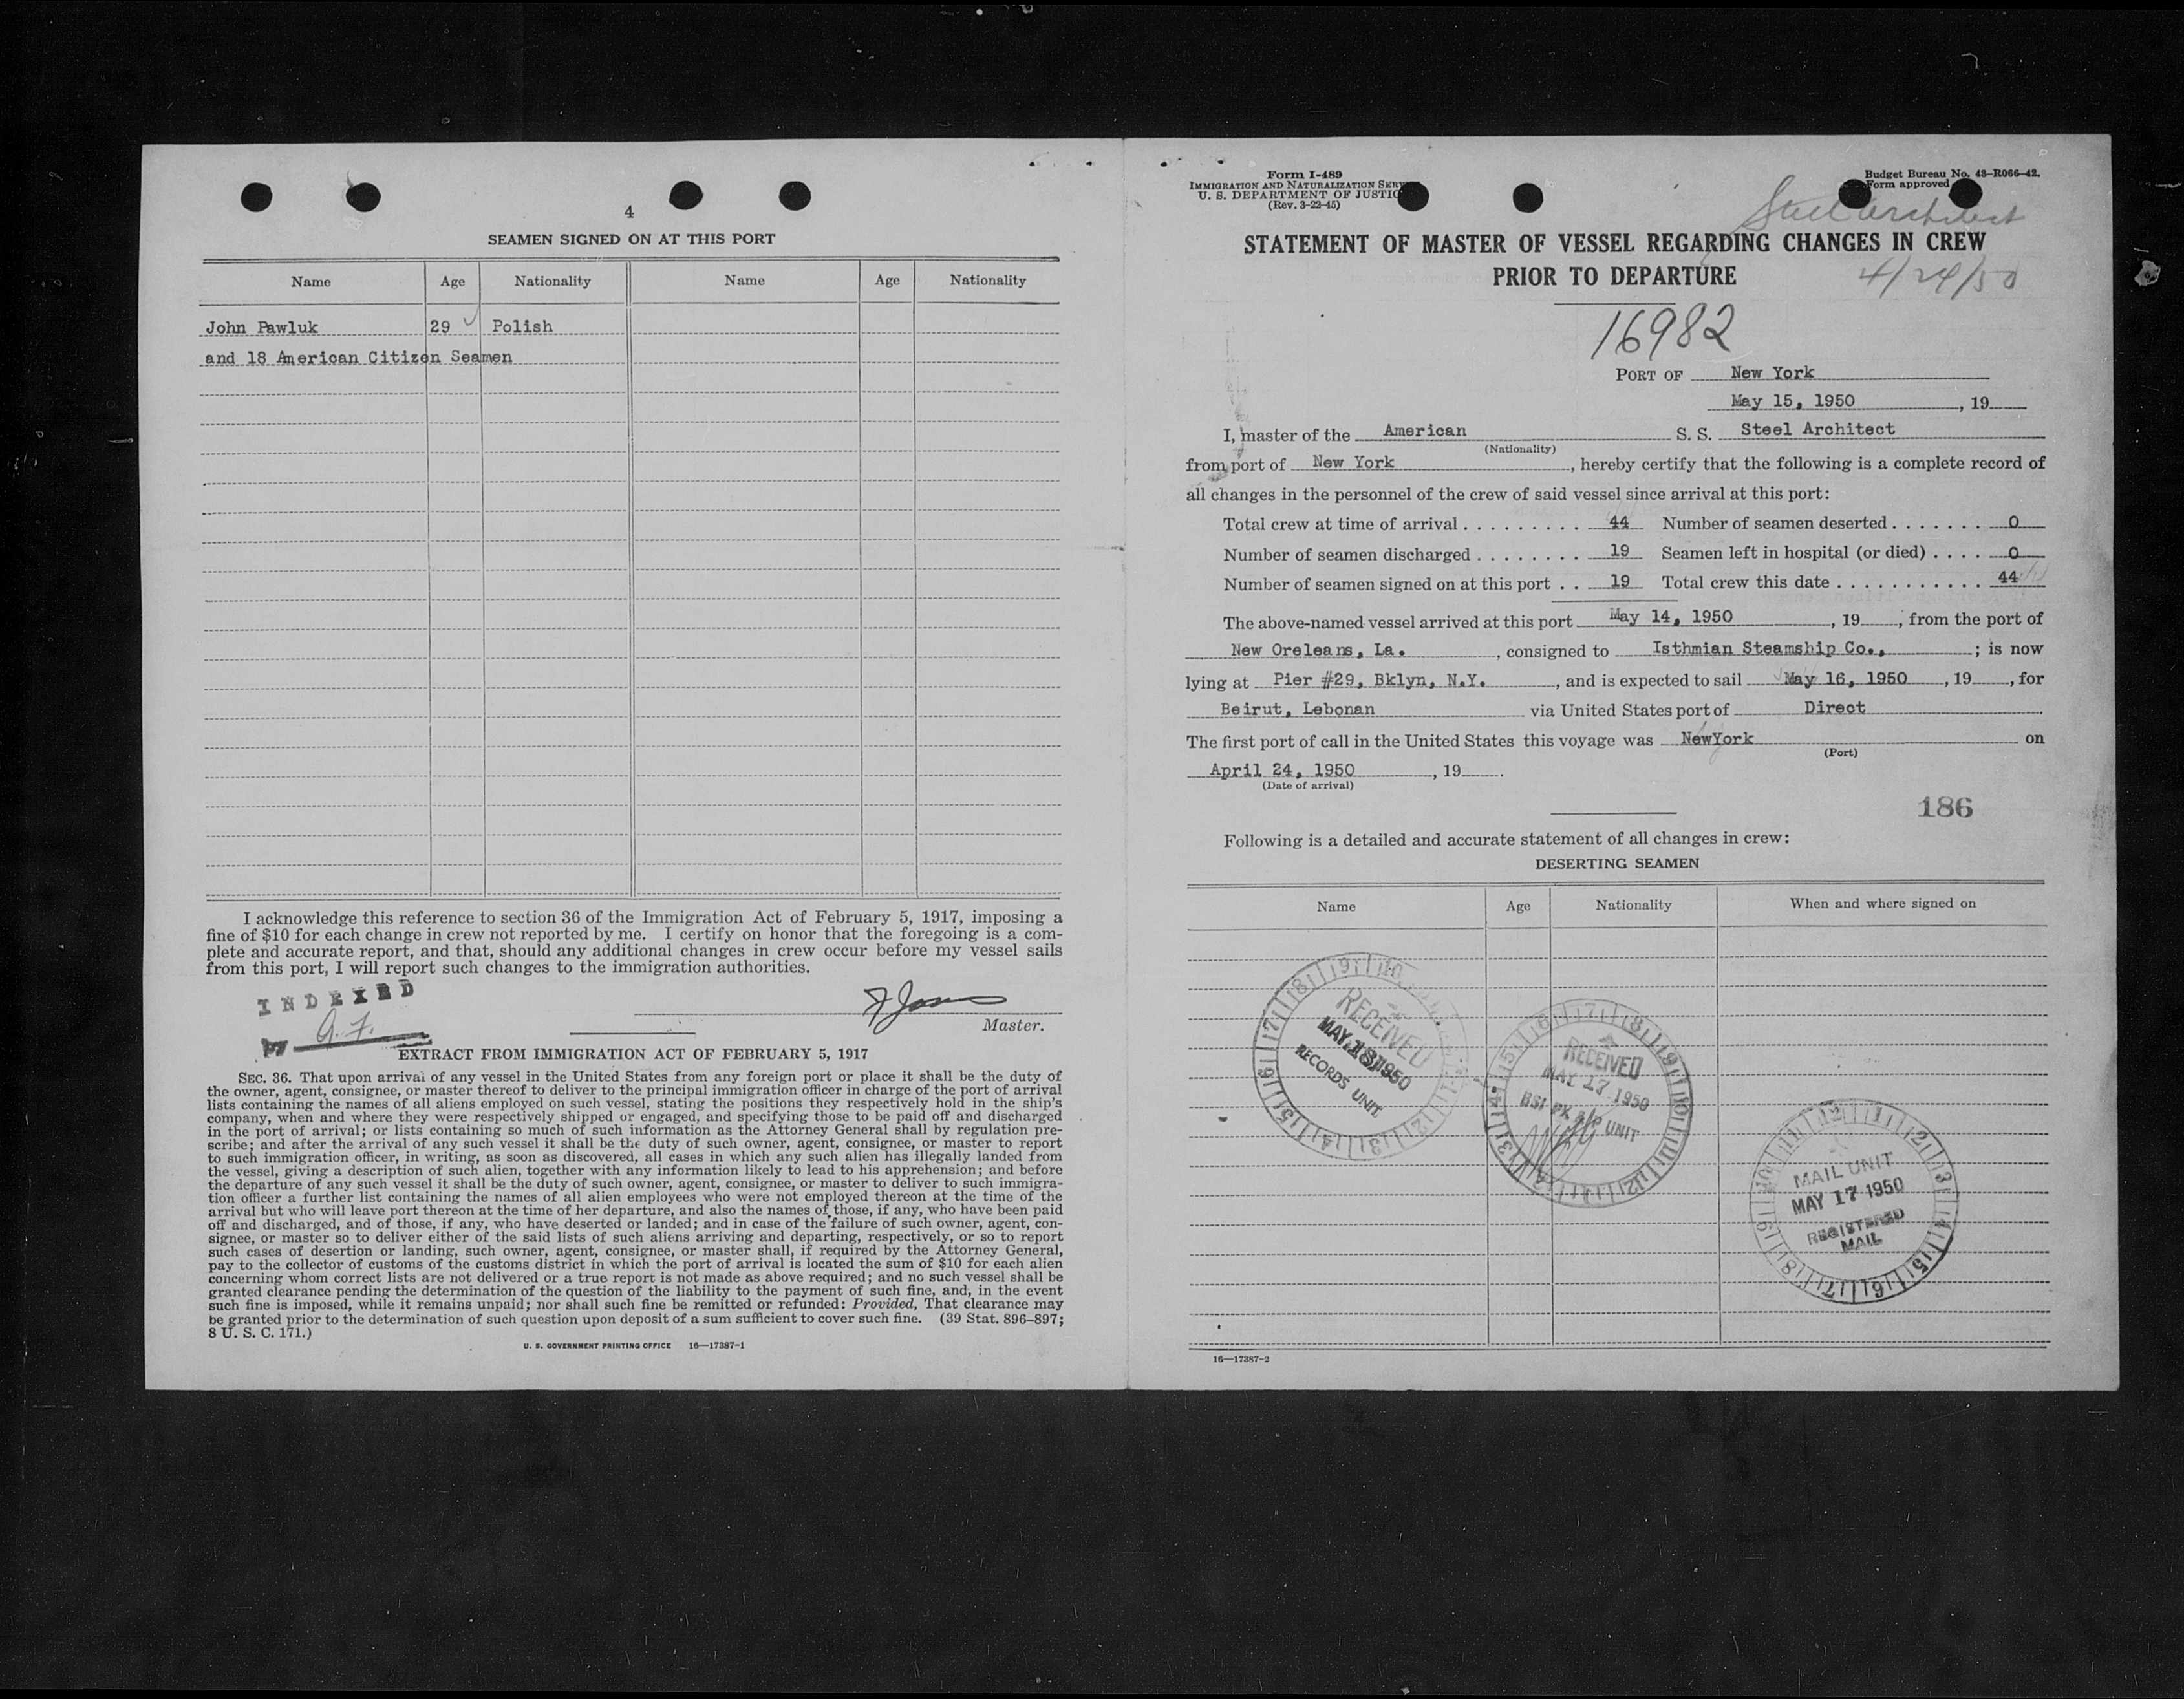 4
SEAMEN SIGNED ON AT THIS PORT
Name Age Nationality Name Age Nationality
John Pawluk 29 Polish
and 18 American Citizen Seamen
I acknowledge this reference to section 36 of the Immigration Act of February 5, 1917, imposing a
fine of $10 for each change in crew not reported by me. I certify on honor that the foregoing is a com-
plete and accurate report, and that, should any additional changes in crew occur before my vessel sails
from this port, I will report such changes to the immigration authorities.
INDEXED
by
Master.
EXTRACT FROM IMMIGRATION ACT OF FEBRUARY 5, 1917
SEC. 36. That upon arrival of any vessel in the United States from any foreign port or place it shall be the duty of
the owner, agent, consignee, or master thereof to deliver to the principal immigration officer in charge of the port of arrival
lists containing the names of all aliens employed on such vessel, stating the positions they respectively hold in the ship's
company, when and where they were respectively shipped or engaged, and specifying those to be paid off and discharged
in the port of arrival; or lists containing so much of such information as the Attorney General shall by regulation pre-
scribe; and after the arrival of any such vessel it shall be the duty of such owner, agent, consignee, or master to report
to such immigration officer, in writing, as soon as discovered, all cases in which any such alien has illegally landed from
the vessel, giving a description of such alien, together with any information likely to lead to his apprehension; and before
the departure of any such vessel it shall be the duty of such owner, agent, consignee, or master to deliver to such immigra-
tion officer a further list containing the names of all alien employees who were not employed thereon at the time of the
arrival but who will leave port thereon at the time of her departure, and also the names of those, if any, who have been paid
off and discharged, and of those, if any, who have deserted or landed; and in case of the failure of such owner, agent, con-
signee, or master so to deliver either of the said lists of such aliens arriving and departing, respectively, or so to report
such cases of desertion or landing, such owner, agent, consignee, or master shall, if required by the Attorney General,
pay to the collector of customs of the customs district in which the port of arrival is located the sum of $10 for each alien
concerning whom correct lists are not delivered or a true report is not made as above required; and no such vessel shall be
granted clearance pending the determination of the question of the liability to the payment of such fine, and, in the event
such fine is imposed, while it remains unpaid; nor shall such fine be remitted or refunded: Provided, That clearance may
be granted prior to the determination of such question upon deposit of a sum sufficient to cover such fine. (39 Stat. 896–897;
8 U. S. C. 171.)
U. S. GOVERNMENT PRINTING OFFICE 16—17387-1
Form I-489
IMMIGRATION AND NATURALIZATION SERV
U. S. DEPARTMENT OF JUSTIC
(Rev. 3-22-45)
Budget Bureau No. 43-R066-42.
Form approved
Steel Architect
STATEMENT OF MASTER OF VESSEL REGARDING CHANGES IN CREW
PRIOR TO DEPARTURE
4/24/50
16982
PORT OF New York
May 15, 1950 , 19
I, master of the American S. S. Steel Architect
(Nationality)
from port of New York , hereby certify that the following is a complete record of
all changes in the personnel of the crew of said vessel since arrival at this port:
Total crew at time of arrival . . . . . . . . . 44 Number of seamen deserted . . . . . . . 0
Number of seamen discharged . . . . . . . . 19 Seamen left in hospital (or died) . . . . 0
Number of seamen signed on at this port . . 19 Total crew this date . . . . . . . . . . . 44
The above-named vessel arrived at this port May 14, 1950 , 19 , from the port of
New Oreleans, La. , consigned to Isthmian Steamship Co., ; is now
lying at Pier #29, Bklyn, N.Y. , and is expected to sail May 16, 1950 , 19 , for
Beirut, Lebonan via United States port of Direct
The first port of call in the United States this voyage was NewYork on
(Port)
April 24, 1950 , 19 .
(Date of arrival)
186
Following is a detailed and accurate statement of all changes in crew:
DESERTING SEAMEN
Name Age Nationality When and where signed on
RECEIVED
MAY 18 1950
RECORDS UNIT
RECEIVED
MAY 17 1950
BSI PX UNIT
MAIL UNIT
MAY 17 1950
REGISTERED
MAIL
16—17387-2